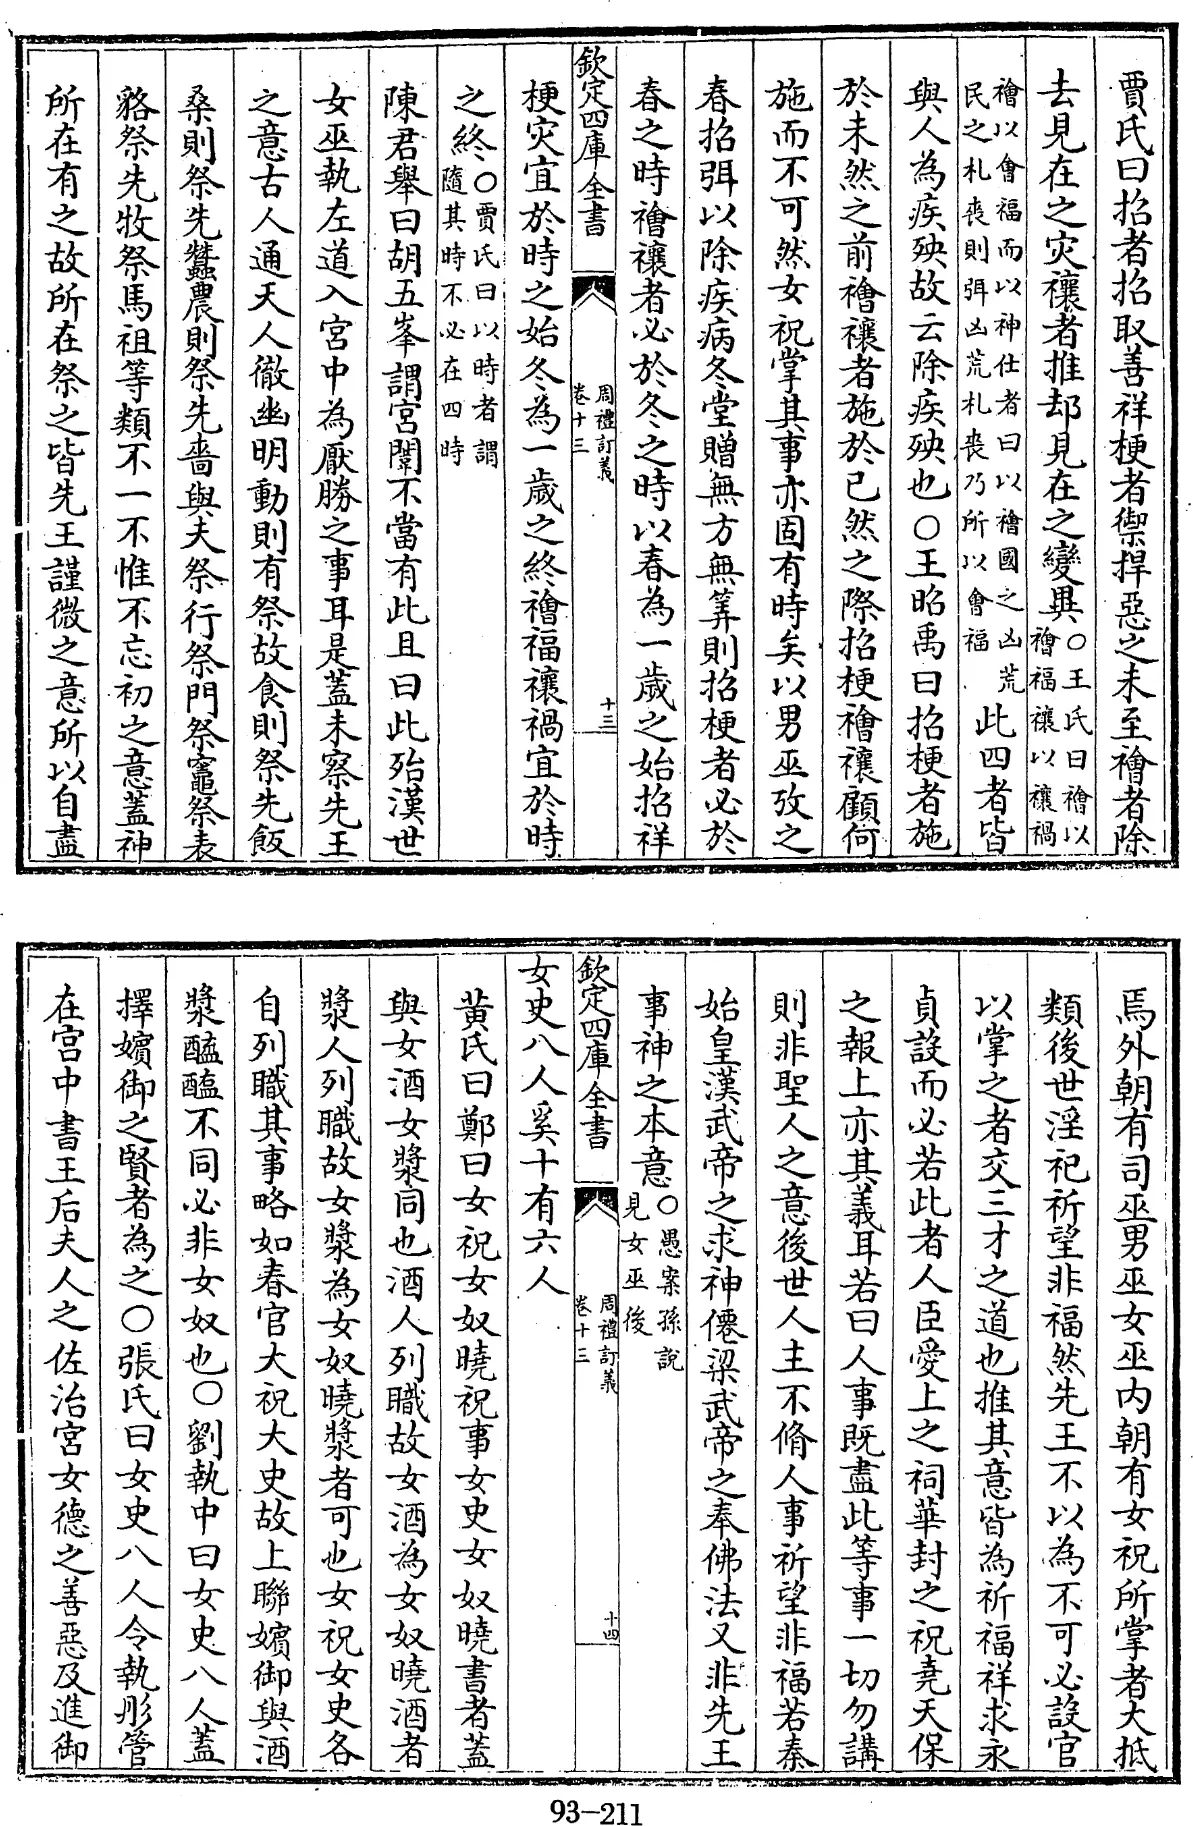 賈氏曰招者招取善祥梗者禦捍惡之未至禬者除
去見在之灾禳者推却見在之變異○王氏曰禬以禬福禳以禳禍
禬以會福而以神仕者曰以禬國之凶荒民之札喪則弭凶荒札喪乃所以會福此四者皆
與人為疾殃故云除疾殃也○王昭禹曰招梗者施
於未然之前禬禳者施於已然之際招梗禬禳顧何
施而不可然女祝掌其事亦固有時矣以男巫攷之
春招弭以除疾病冬堂贈無方無筭則招梗者必於
春之時禬禳者必於冬之時以春為一歲之始招祥
欽定四庫全書
周禮訂義
卷十三
十三
梗灾宜於時之始冬為一歲之終禬福禳禍宜於時
之終○賈氏曰以時者謂隨其時不必在四時
陳君舉曰胡五峯謂宮闈不當有此且曰此殆漢世
女巫執左道入宮中為厭勝之事耳是蓋未察先王
之意古人通天人徹幽明動則有祭故食則祭先飯
桑則祭先蠶農則祭先嗇與夫祭行祭門祭竈祭表
貉祭先牧祭馬祖等類不一不惟不忘初之意蓋神
所在有之故所在祭之皆先王謹微之意所以自盡
焉外朝有司巫男巫女巫内朝有女祝所掌者大抵
類後世淫祀祈望非福然先王不以為不可必設官
以掌之者交三才之道也推其意皆為祈福祥求永
貞設而必若此者人臣愛上之祠華封之祝堯天保
之報上亦其義耳若曰人事既盡此等事一切勿講
則非聖人之意後世人主不脩人事祈望非福若秦
始皇漢武帝之求神僊梁武帝之奉佛法又非先王
事神之本意○愚案孫說見女巫後
欽定四庫全書
周禮訂義
卷十三
十四
女史八人奚十有六人
黃氏曰鄭曰女祝女奴曉祝事女史女奴曉書者蓋
與女酒女漿同也酒人列職故女酒為女奴曉酒者
漿人列職故女漿為女奴曉漿者可也女祝女史各
自列職其事略如春官大祝大史故上聯嬪御與酒
漿醢醯不同必非女奴也○劉執中曰女史八人蓋
擇嬪御之賢者為之○張氏曰女史八人令執彤管
在宮中書王后夫人之佐治宮女德之善惡及進御
93-211